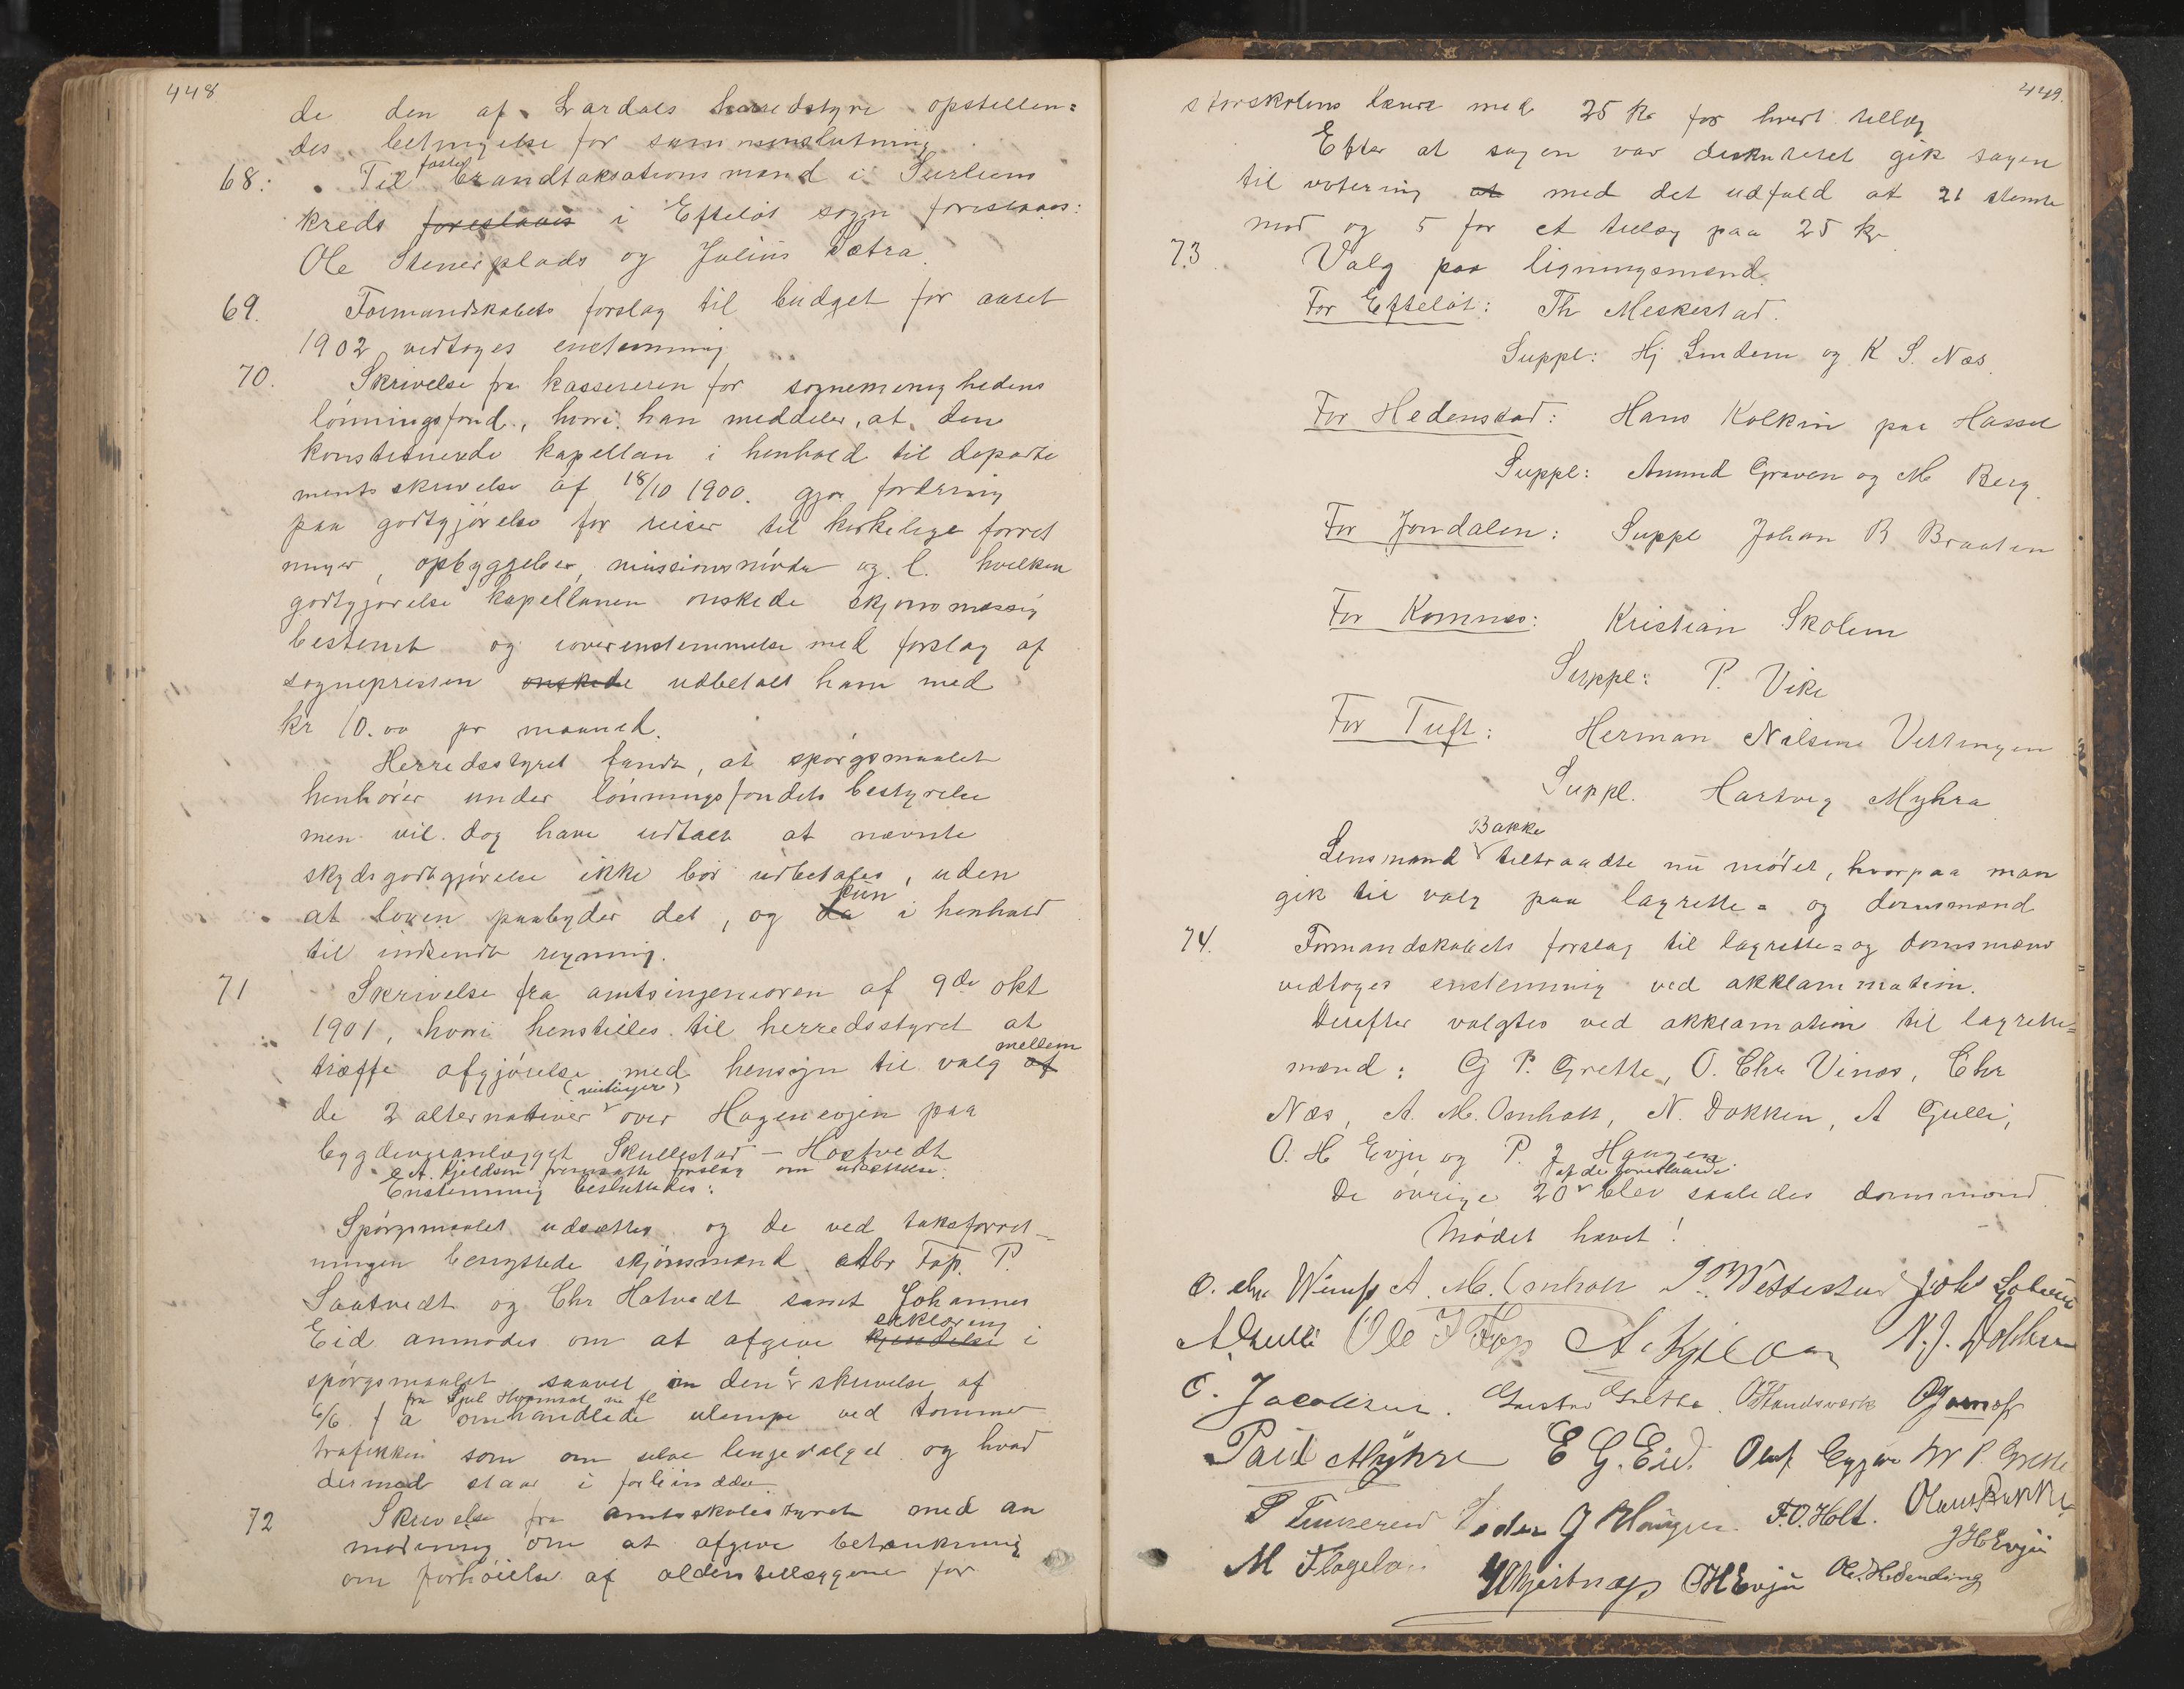 448
de den af Lardals herredstyre opstillen=
des betingelse for sammenslutning
68. Til faste brandtaksationsmænd i Surliens
kreds foreslaaes i Efteløt sogn foreslaaes:
Ole Stenersplads og Julius Sætra.
69. Formandskabets forslag til budget for aaret
1902 vedtoges enstemmig
70. Skrivelse fra kassereren for sognemenighedens
lønningsfond, hvori han meddeler, at den
konstituerede kapellan i henhold til departe
mentsskrivelse af 18/10 1900. gjør fordring
paa godtgjørelse for reiser til kirkelige forret
ninger, opbyggelser, missionsmøder og l. hvilken
godtgjørelse kapellanen ønskede skjønsmæssig
bestemt og i overenstemmelse med forslag af
sognepresten ønskede udbetalt ham med
kr 10.00 pr maaned.
Herredsstyret fandt, at spørgsmaalet
henhører under lønningsfondets bestyrelse
men vil dog have udtalt at nævnte
skydsgodtgjørelse ikke bør udbetales, uden
at loven paabyder det, og da kun i henhold
til indsendt regning.
71 Skrivelse fra amtsingeniøren af 9de okt
1901, hvori henstilles til herredsstyret at
træffe afgjørelse med hensyn til valg af mellem
de 2 alternativer over Hagenevjen paa
bygdeveianlægget Skullestad – Hostvedt
A. Kjeldsen fremsatte forslag om udsættelse.
Enstemmig besluttedes:
Spørgsmaalet udsættes og de ved taksforret=
ningen benyttede skjønsmænd Atbr Fop. P.
Saatvedt og Chr Hotvedt samt Johannes
Eid anmodes om at afgive kjendelse erklæring i
spørgsmaalet saavel om den i skrivelse af
6/6 fra omhandlede ulempe ved tømmer
trafikken som om selve lengevalget og hvad
dermed staar i forbindelse.
72 Skrivelse fra amtsskolestyret med an
modning om at afgive betænkning
om forhøielse af alderstillæggene for
449.
storskolens lærere med 25 kr for hvert tillæg
Efter at sagen var diskuteret gik sagen
til votering at med det udfald at 21 stemte
mod og 5 for et tillæg paa 25 kr
73. Valg paa ligningsmænd.
For Efteløt: Th Meskestad.
Suppl: Hj Lindem og K S. Næs.
For Hedenstad: Hans Kolkin paa Hassel
Suppl: Amund Graven og M Berg.
For Jondalen: Suppl Johan B Braaten
For Komnes: Kristian Skolem
Suppl: P. Vike
For Tuft: Herman Nilsene Vettingen
Suppl. Hartvig Myhra
Lensmand Bakke tiltraadte nu mødet, hvorpaa man
gik til valg paa lagrette= og domsmænd
74. Formandskabets forslag til lagrette= og domsmænd
vedtoges enstemmig ved akklammation.
Derefter valgtes ved akklamation til lagrette=
mænd: G P. Grette, O. Chr Vinæs, Chr
Næs, A. M. Omholt, N. Dokken, A Gulli,
O. H Evju og P. J Haugen
De øvrige 20 af de foreslaaede blev saaledes domsmænd
Mødet hævet!
O. Chr A. M. Omholt
A. Gulli Ole J Fop N. J. Dokken
O. Jacobsen. Gustav Grette
Paul Myhre E G. Eid. P. Grette
Peder J Haugen. F. O. Holt. Olaus Bakke
M Flagelo O H Evju Ole H Sending
J H Evju